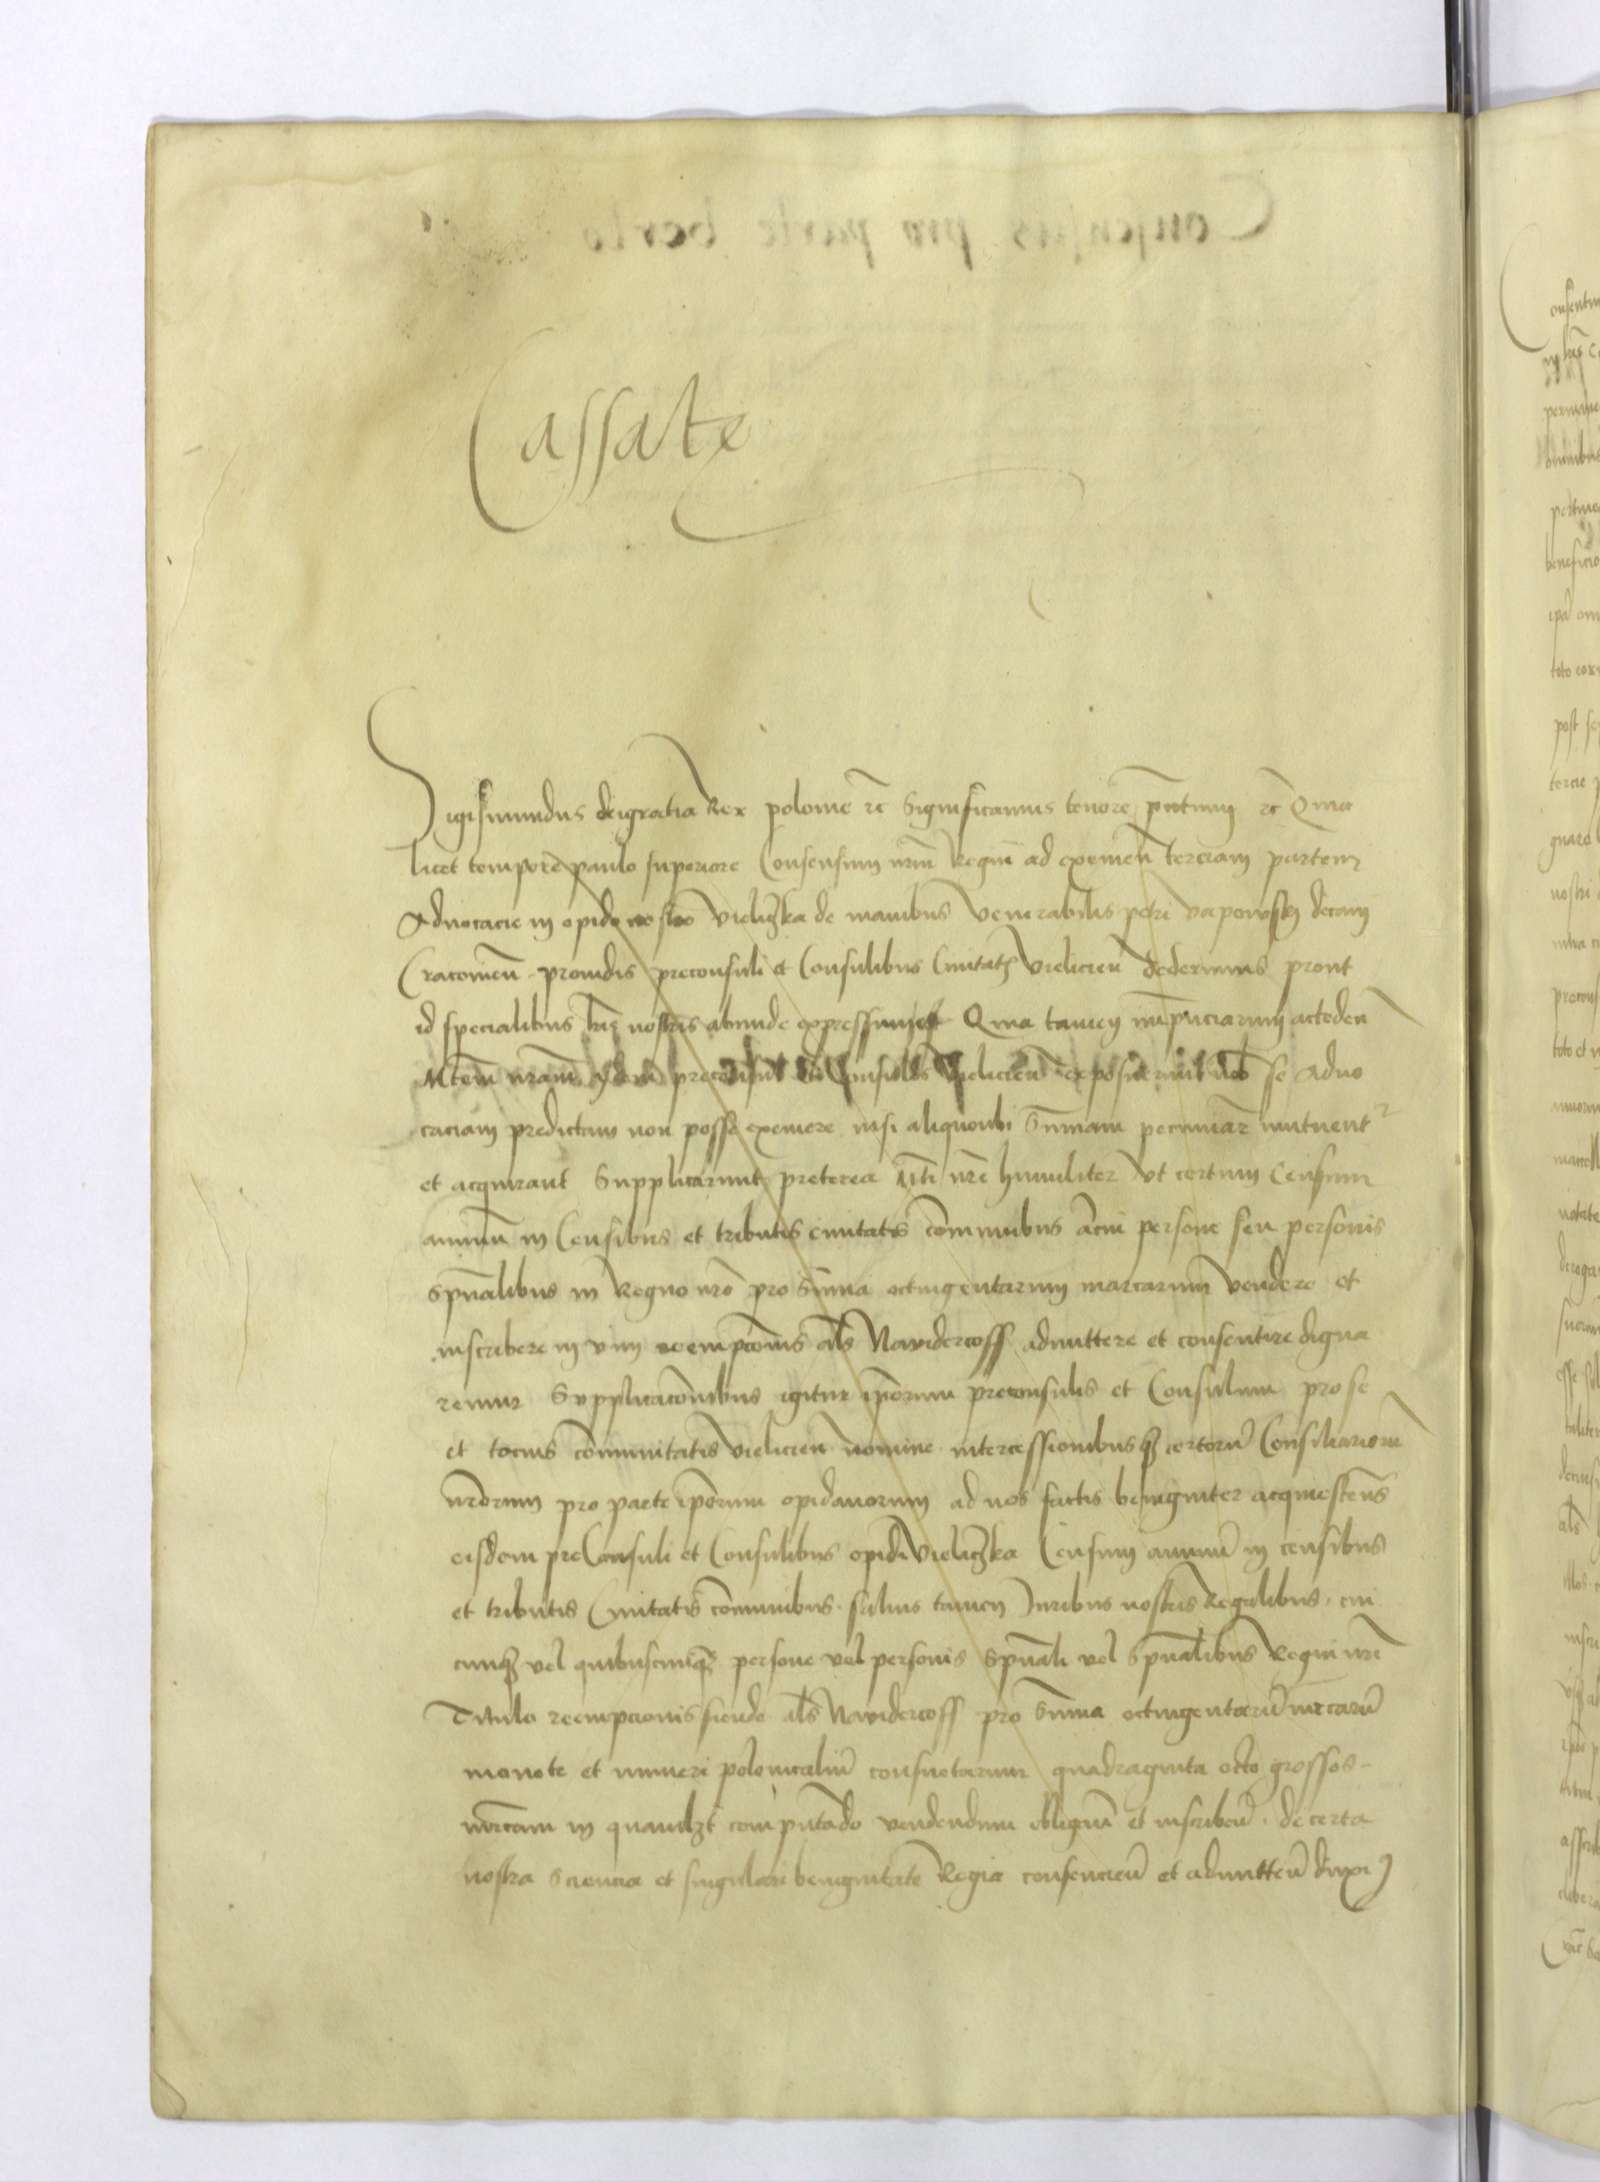 Cassate
Sigismundus dei gratia Rex polonie rc Significamus tenore pntium rc Quia
licet tempore paulo superiore Consensum nrum Regiu ad eximen terciam partem
Advocacie in opido nostro Vieliczka de manibus Venerabilis petri Vapowsky decani
Cracovien providis preconsuli et Consulibus Civitatis Vielicien dederimus prout
id specialibus lris nostris abunde expressum est Quia tamen in pnciarum acceden
Mtem nram ydem preconsul et Consules Vielicien exposuerunt nob se advo
caciam predictam non posse eximere nisi aliquoubi Summam pecuniar mutuent
et acquirant Supplicarunt preterea Mti nre humiliter Vt certum Censum
annuum in Censibus et tributis civitatis communibus alicui persone seu personis
spualibus in Regno nro pro Summa octingentarum marcarum vendere et
inscribere in vim reempcionis als Navidercoff admittere et consentire digna
remur Supplicacionibus igitur iporum preconsulis et Consulum pro se
et tocius communitatis Vielicien nomine intercessionibusque certoru Consiliarioru
nrorum pro parte iporum opidanorum ad nos factis benigniter acquiescens
eisdem preConsuli et Consulibus opidi Vieliczka Censum annuu in censibus
et tributis Civitatis communibus salvis tamen Iuribus nostris Regalibus cui
cunque vel quibuscunque persone vel personis spuali vel spualibus Regni nri
Titulo reempcionis fiende als Navidercoff pro Summa octingentaru marcaru
monete et numeri polonicaliu consuetarum quadraginta octo grossos
marcam in quamlzt computado vendendum obligan et inscriben de certa
nostra sciencia et singulari benignitate Regia consencien et admitten duxi